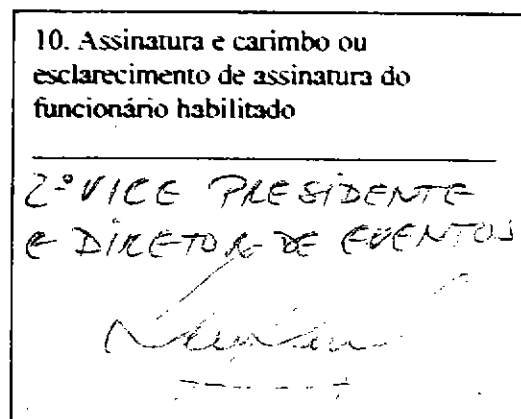 10. Assinatura e carimbo ou
esclarecimento de assinatura do
funcionário habilitado
2º VICE PRESIDENTE
E DIRETOR DE EVENTOS